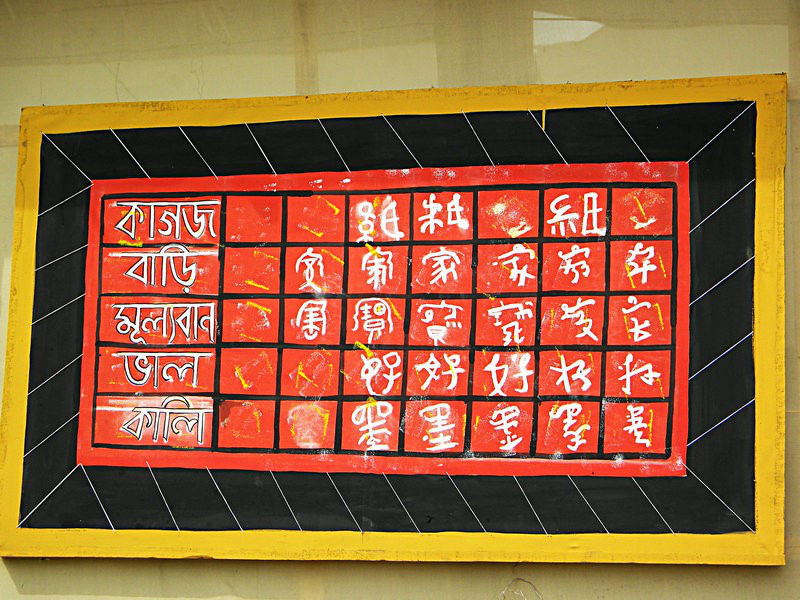 কাগজ 紙
বাড়ি 家 家 家 家 家 家
মূল্যবান 寶 寶 寶
ভাল 好 好 好 好 好
কালি 墨 墨 墨 墨 墨